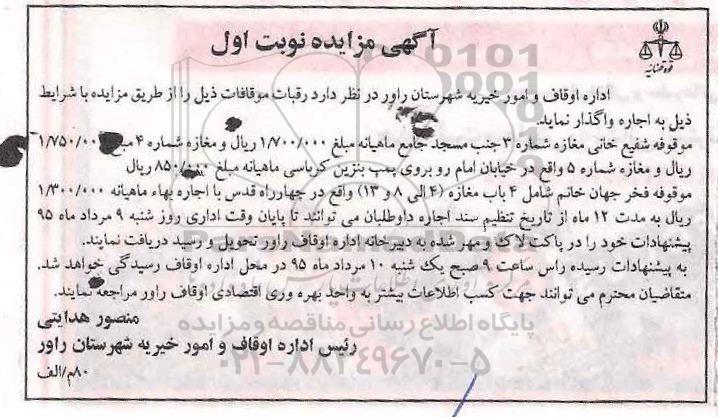 آگهی مزایده نوبت اول
قوه قضائیه
اداره اوقاف و امور خیریه شهرستان راور در نظر دارد رقبات موقافات ذیل را از طریق مزایده با شرایط
ذیل به اجاره واگذار نماید.
موقوفه شفیع خانی مغازه شماره ۳ جنب مسجد جامع ماهیانه مبلغ ۱/۷۰۰/۰۰۰ ریال و مغازه شماره ۴ مبلغ ۱/۷۵۰/۰۰۰
ریال و مغازه شماره ۵ واقع در خیابان امام رو بروی پمپ بنزین کرباسی ماهیانه مبلغ ۸۵۰/۰۰۰ ریال
موقوفه فخر جهان خانم شامل ۴ باب مغازه (۴ الی ۸ و ۱۳) واقع در چهارراه قدس با اجاره بهاء ماهیانه ۱/۳۰۰/۰۰۰
ریال به مدت ۱۲ ماه از تاریخ تنظیم سند اجاره داوطلبان می توانند تا پایان وقت اداری روز شنبه ۹ مرداد ماه ۹۵
پیشنهادات خود را در پاکت لاک و مهر شده به دبیرخانه اداره اوقاف راور تحویل و رسید دریافت نمایند.
به پیشنهادات رسیده راس ساعت ۹ صبح یک شنبه ۱۰ مرداد ماه ۹۵ در محل اداره اوقاف رسیدگی خواهد شد.
متقاضیان محترم می توانند جهت کسب اطلاعات بیشتر به واحد بهره وری اقتصادی اوقاف راور مراجعه نمایند.
منصور هدایتی
پایگاه اطلاع رسانی مناقصه و مزایده
رئیس اداره اوقاف و امور خیریه شهرستان راور
۰۲۱-۸۸۳۴۹۶۷۰-۵
۸۰م/الف